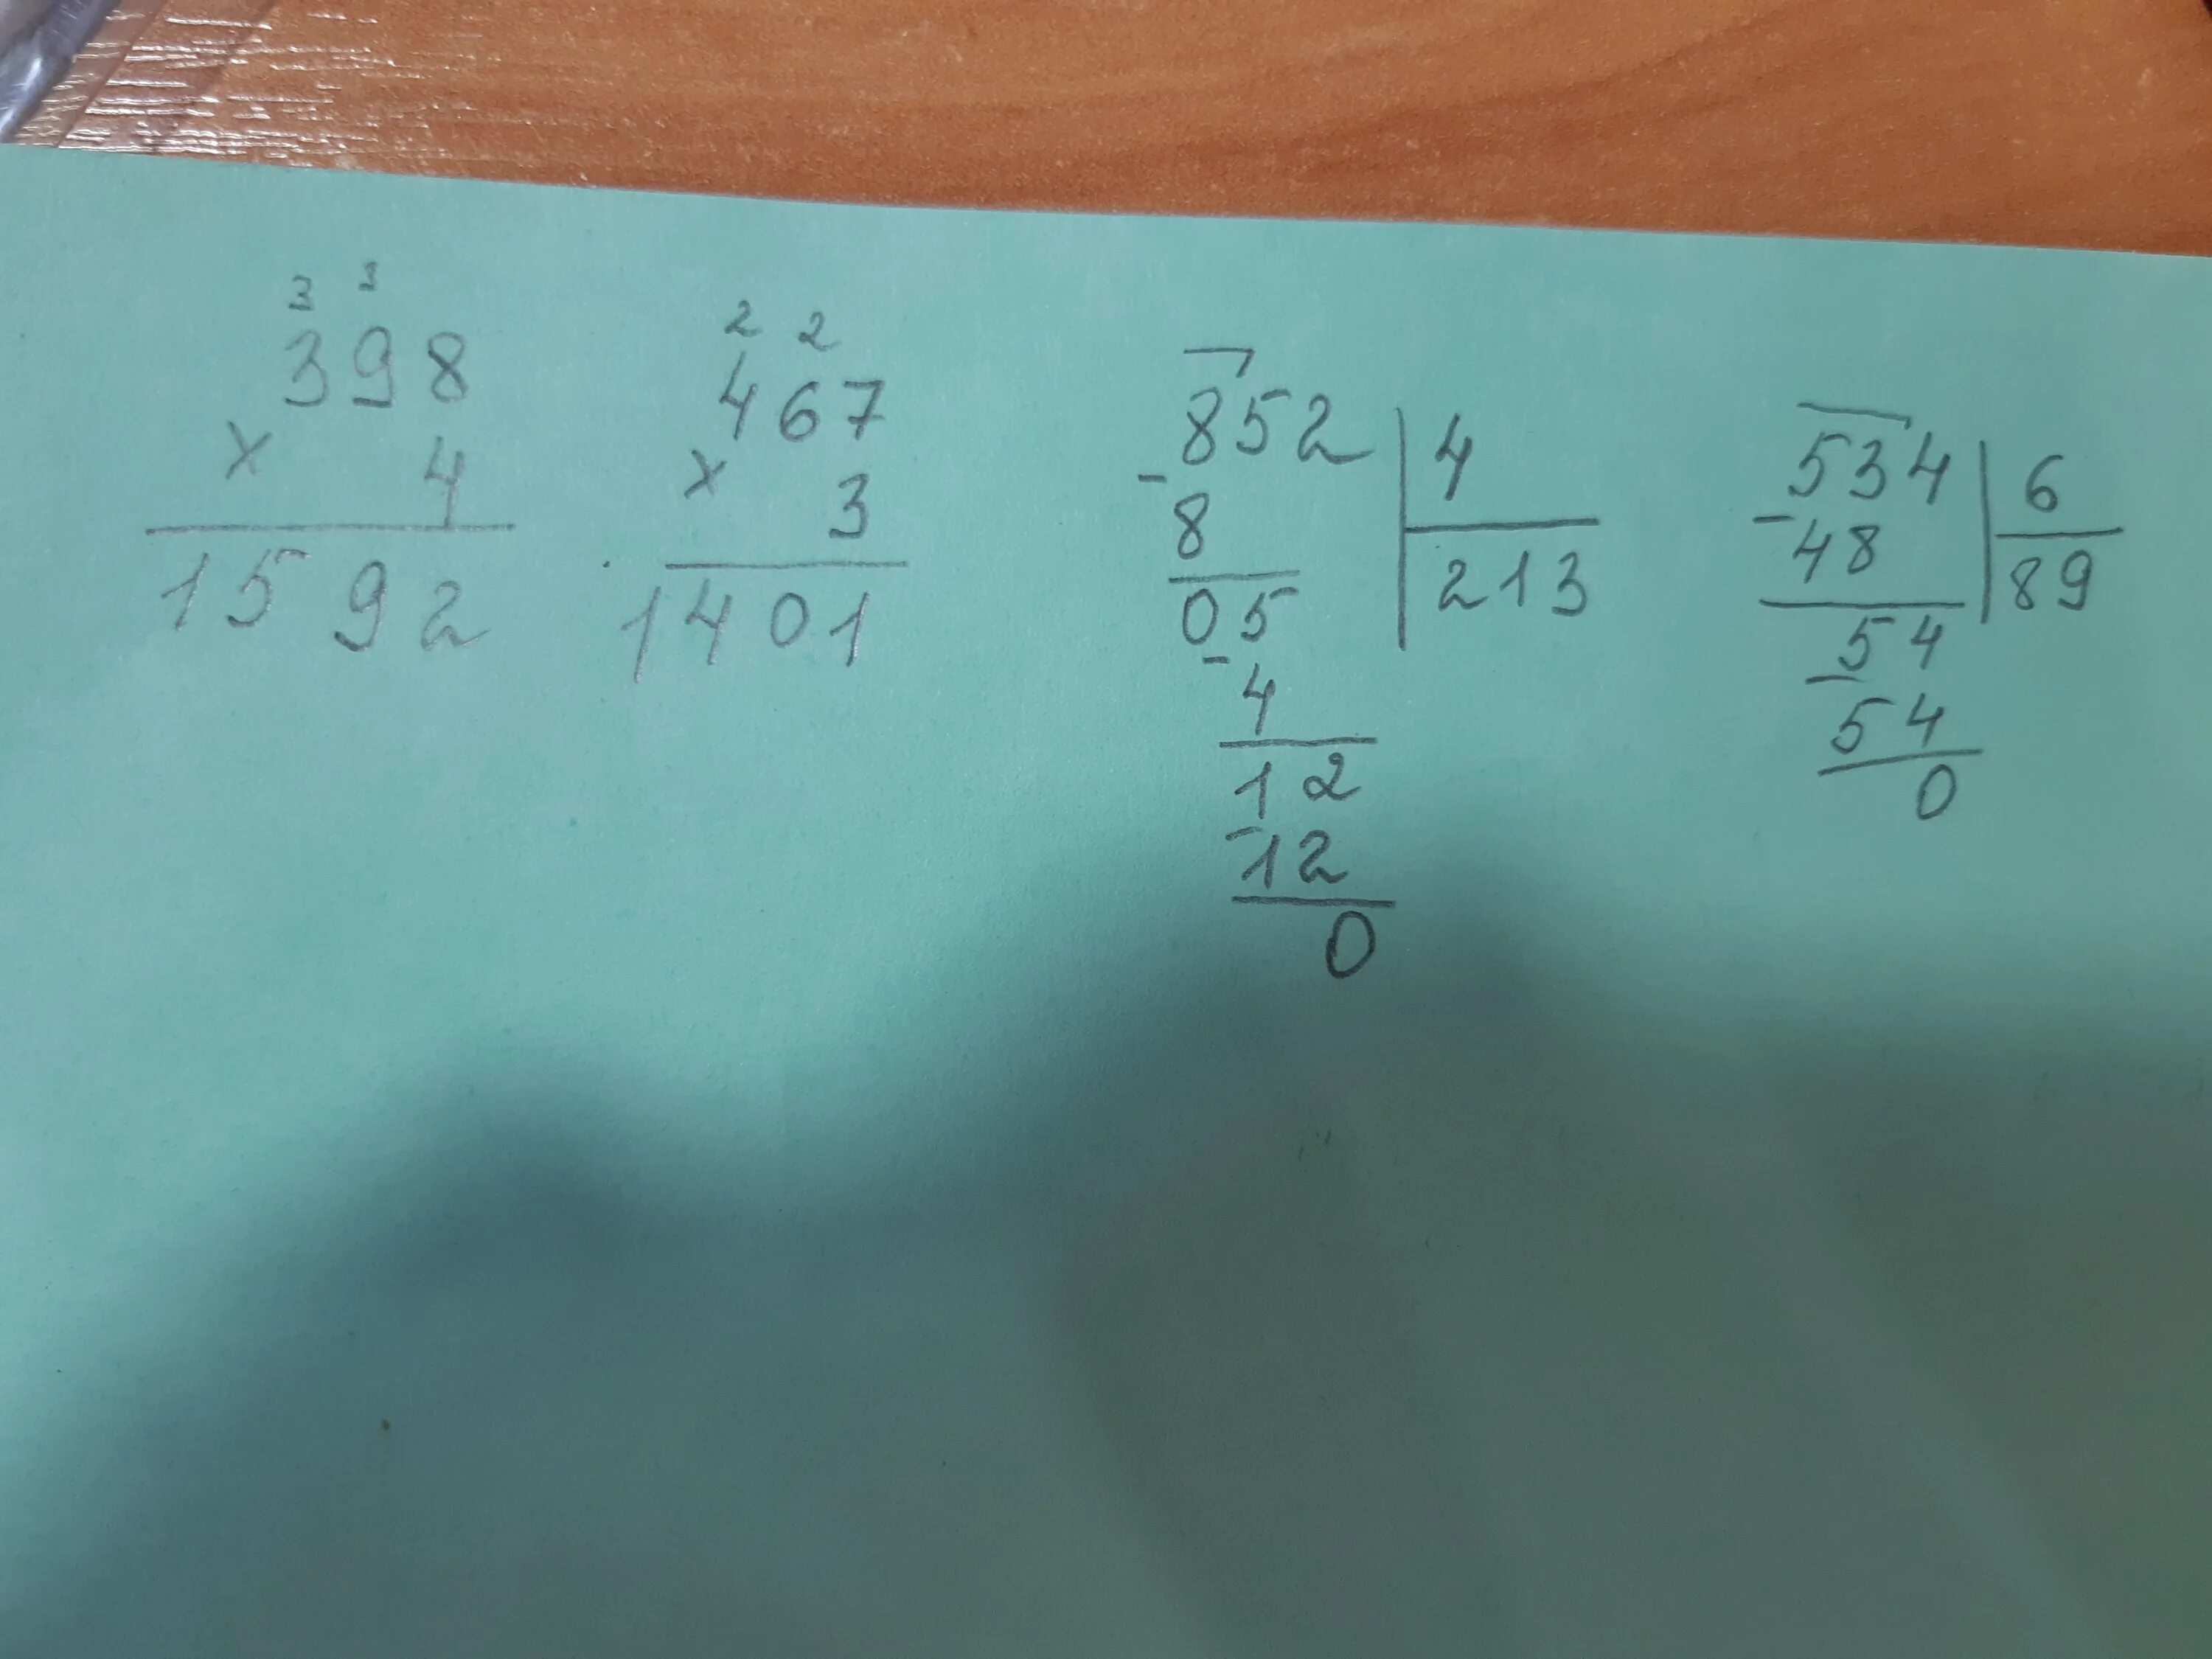 3 3
398
× 4
1592
2 2
467
× 3
1401
852 | 4
- 8 | 213
05
- 4
12
- 12
0
534 | 6
- 48 | 89
54
- 54
0